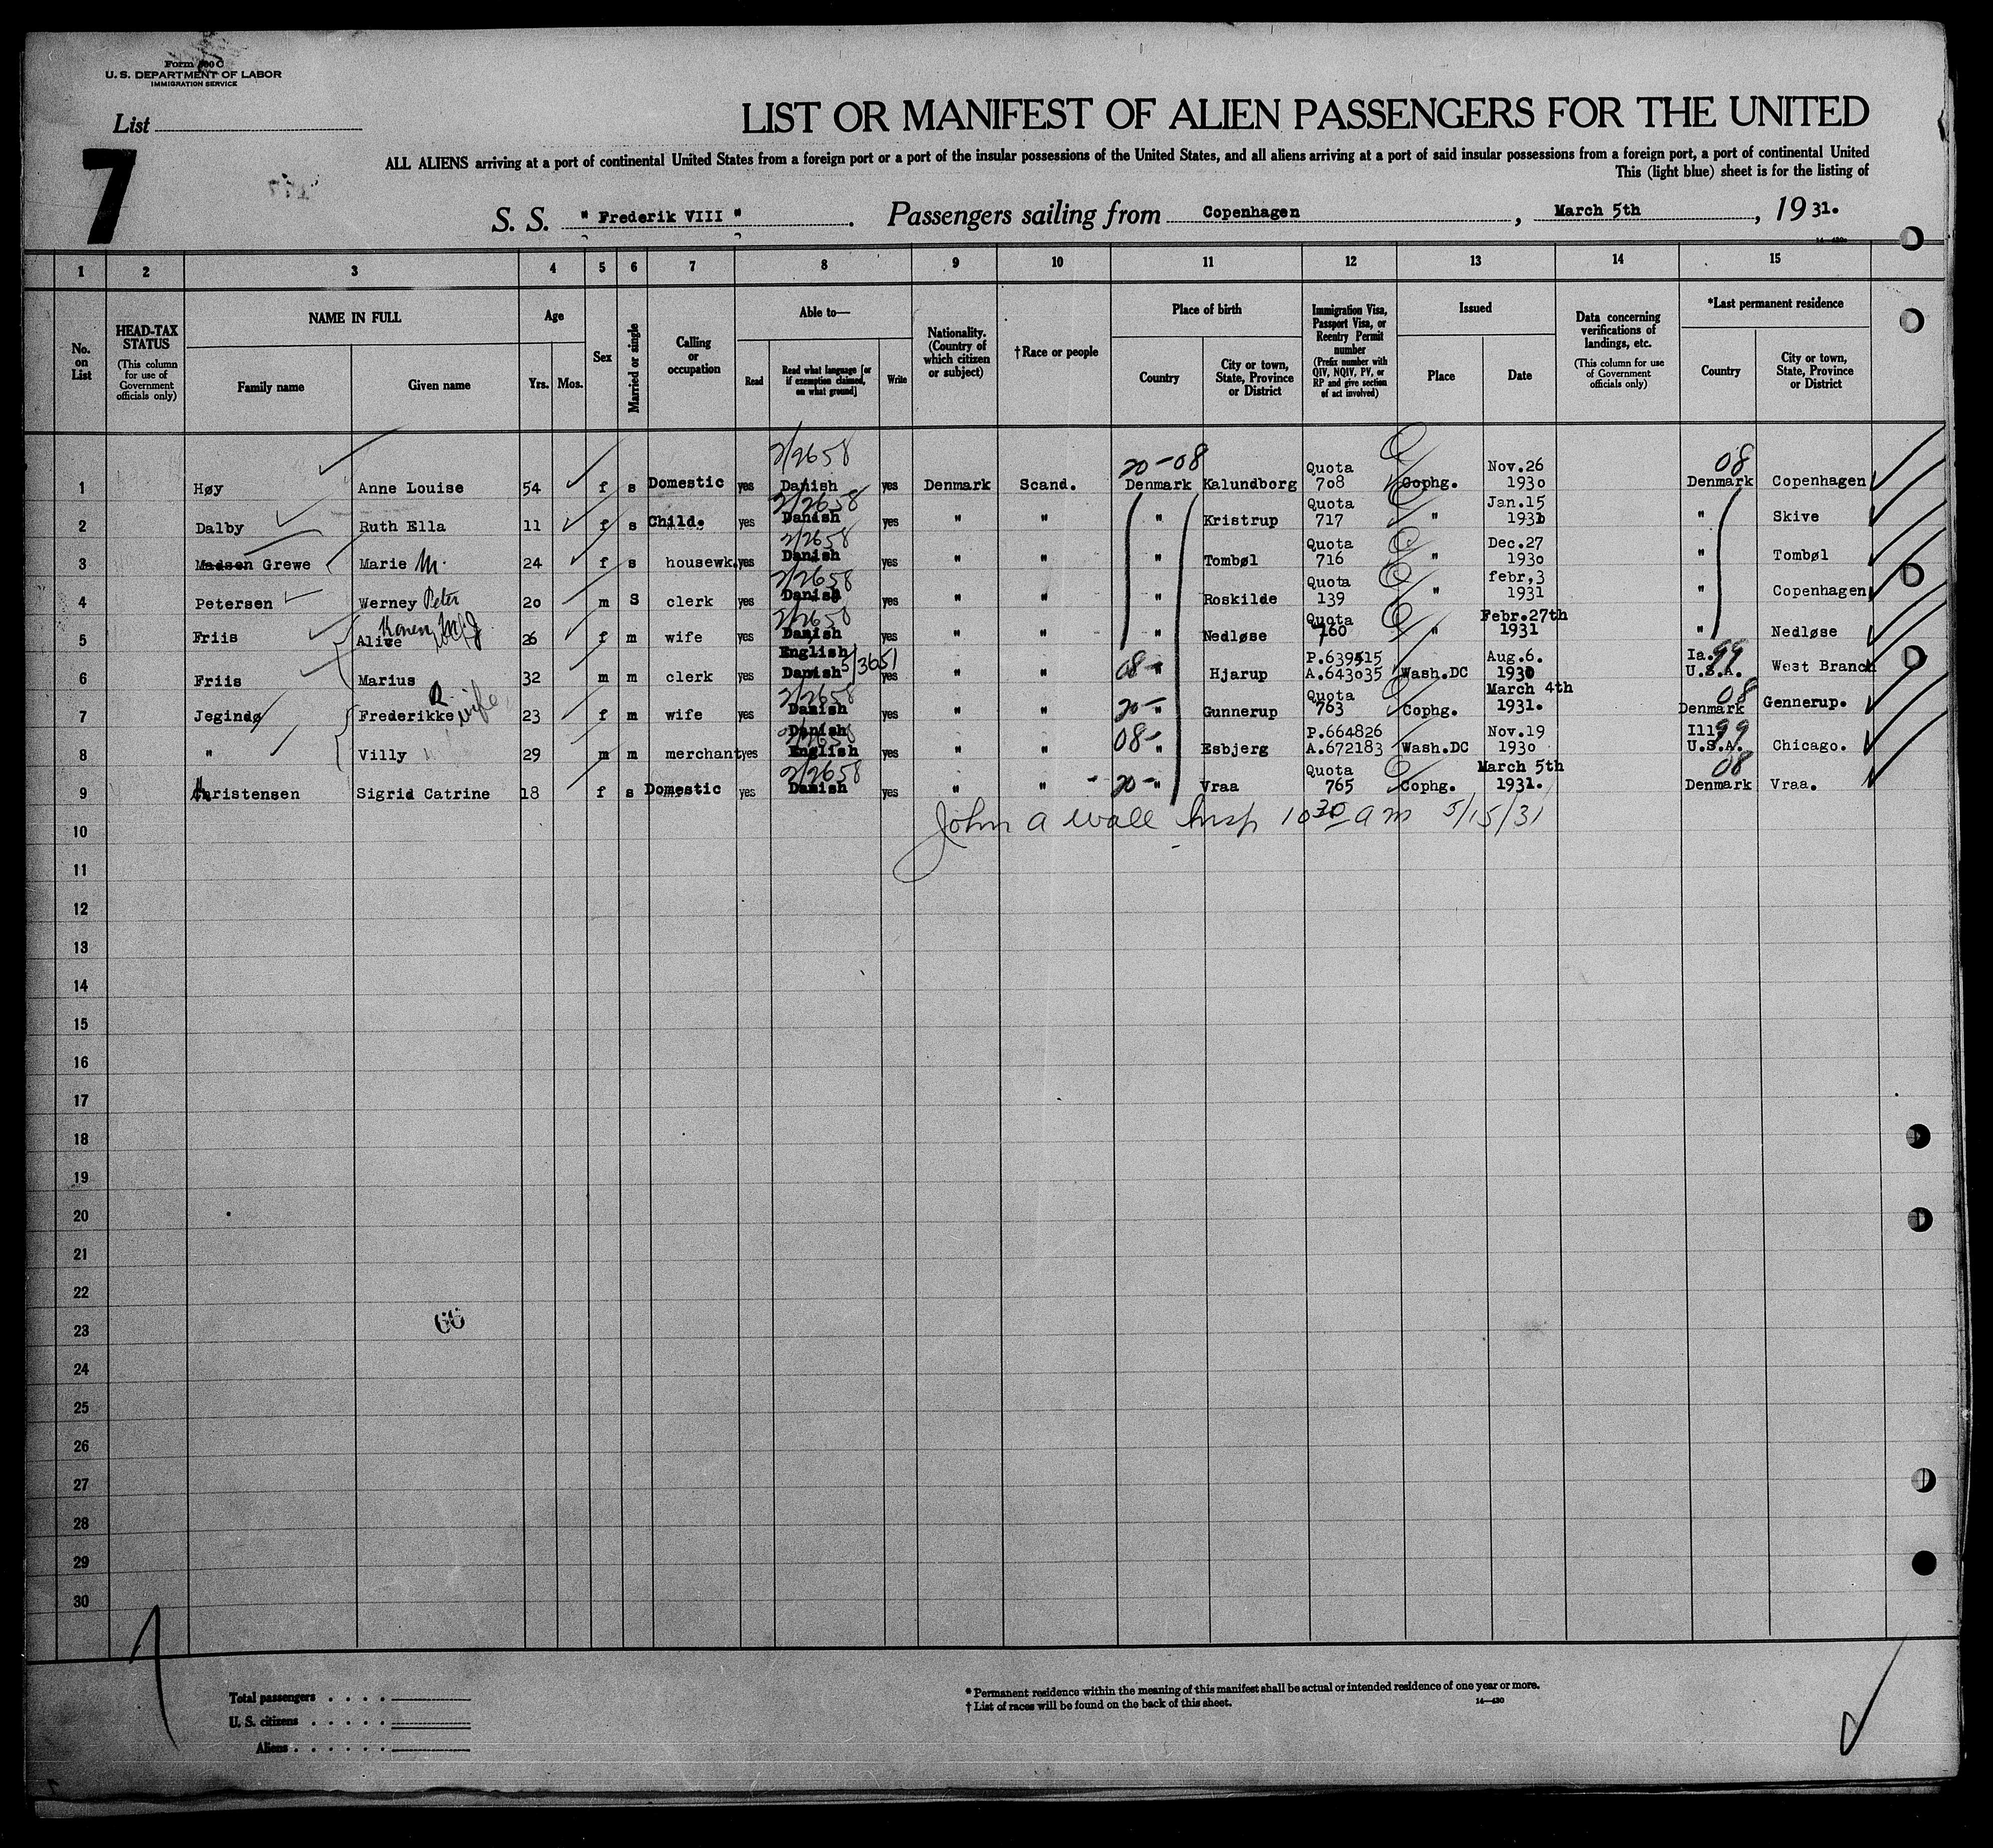 Form 500 C
U. S. DEPARTMENT OF LABOR
IMMIGRATION SERVICE
List
7
LIST OR MANIFEST OF ALIEN PASSENGERS FOR THE UNITED
ALL ALIENS arriving at a port of continental United States from a foreign port or a port of the insular possessions of the United States, and all aliens arriving at a port of said insular possessions from a foreign port, a port of continental United
This (light blue) sheet is for the listing of
S. S. " Frederik VIII ". Passengers sailing from Copenhagen , March 5th , 19 31.
14-430
1 2 3 4 5 6 7 8 9 10 11 12 13 14 15
No. on List
HEAD-TAX STATUS (This column for use of Government officials only)
NAME IN FULL
Family name Given name
Age
Yrs. Mos.
Sex
Married or single
Calling or occupation
Able to—
Read Read what language [or if exemption claimed, on what ground] Write
Nationality. (Country of which citizen or subject)
†Race or people
Place of birth
Country City or town, State, Province or District
Immigration Visa, Passport Visa, or Reentry Permit number (Prefix number with QIV, NQIV, PV, or RP and give section of act involved)
Issued
Place Date
Data concerning verifications of landings, etc. (This column for use of Government officials only)
*Last permanent residence
Country City or town, State, Province or District
2/2658 20-08 Quota Nov.26 08
1 Høy Anne Louise 54 f s Domestic yes Danish yes Denmark Scand. Denmark Kalundborg 708 Cophg. 1930 Denmark Copenhagen
2/2658 Quota Jan.15
2 Dalby Ruth Ella 11 f s Child. yes Danish yes " " " Kristrup 717 " 1931 " Skive
2/2658 Quota Dec.27
3 Madsen Grewe Marie M. 24 f s housewk. yes Danish yes " " " Tombøl 716 " 1930 " Tombøl
2/2658 Quota febr,3
4 Petersen Werney Peter 20 m S clerk yes Danish yes " " " Roskilde 139 " 1931 " Copenhagen
Karen 2/2658 Quota Febr.27th
5 Friis Alice 26 f m wife yes Danish yes " " " Nedløse 760 " 1931 " Nedløse
English 5/3651 P.639515 Aug.6. Ia. 99
6 Friis Marius 32 m m clerk yes Danish yes " " 08- " Hjarup A.643035 Wash.DC 1930 U.S.A. West Branch
R. wife 2/2658 Quota March 4th 08
7 Jegindø Frederikke 23 f m wife yes Danish yes " " 20- " Gunnerup 763 Cophg. 1931. Denmark Gennerup.
Danish 2/2658 P.664826 Nov.19 Ill 99
8 " Villy 29 m m merchant yes English yes " " 08- " Esbjerg A.672183 Wash.DC 1930 U.S.A. Chicago.
2/2658 Quota March 5th 08
9 Christensen Sigrid Catrine 18 f s Domestic yes Danish yes " " - 20- " Vraa 765 Cophg. 1931. Denmark Vraa.
John A Wall Insp 10 30 am 5/15/31
10
11
12
13
14
15
16
17
18
19
20
21
22
23
24
25
26
27
28
29
30
Total passengers . . . .
U. S. citizens . . . . .
Aliens . . . . . .
* Permanent residence within the meaning of this manifest shall be actual or intended residence of one year or more.
† List of races will be found on the back of this sheet. 14-430